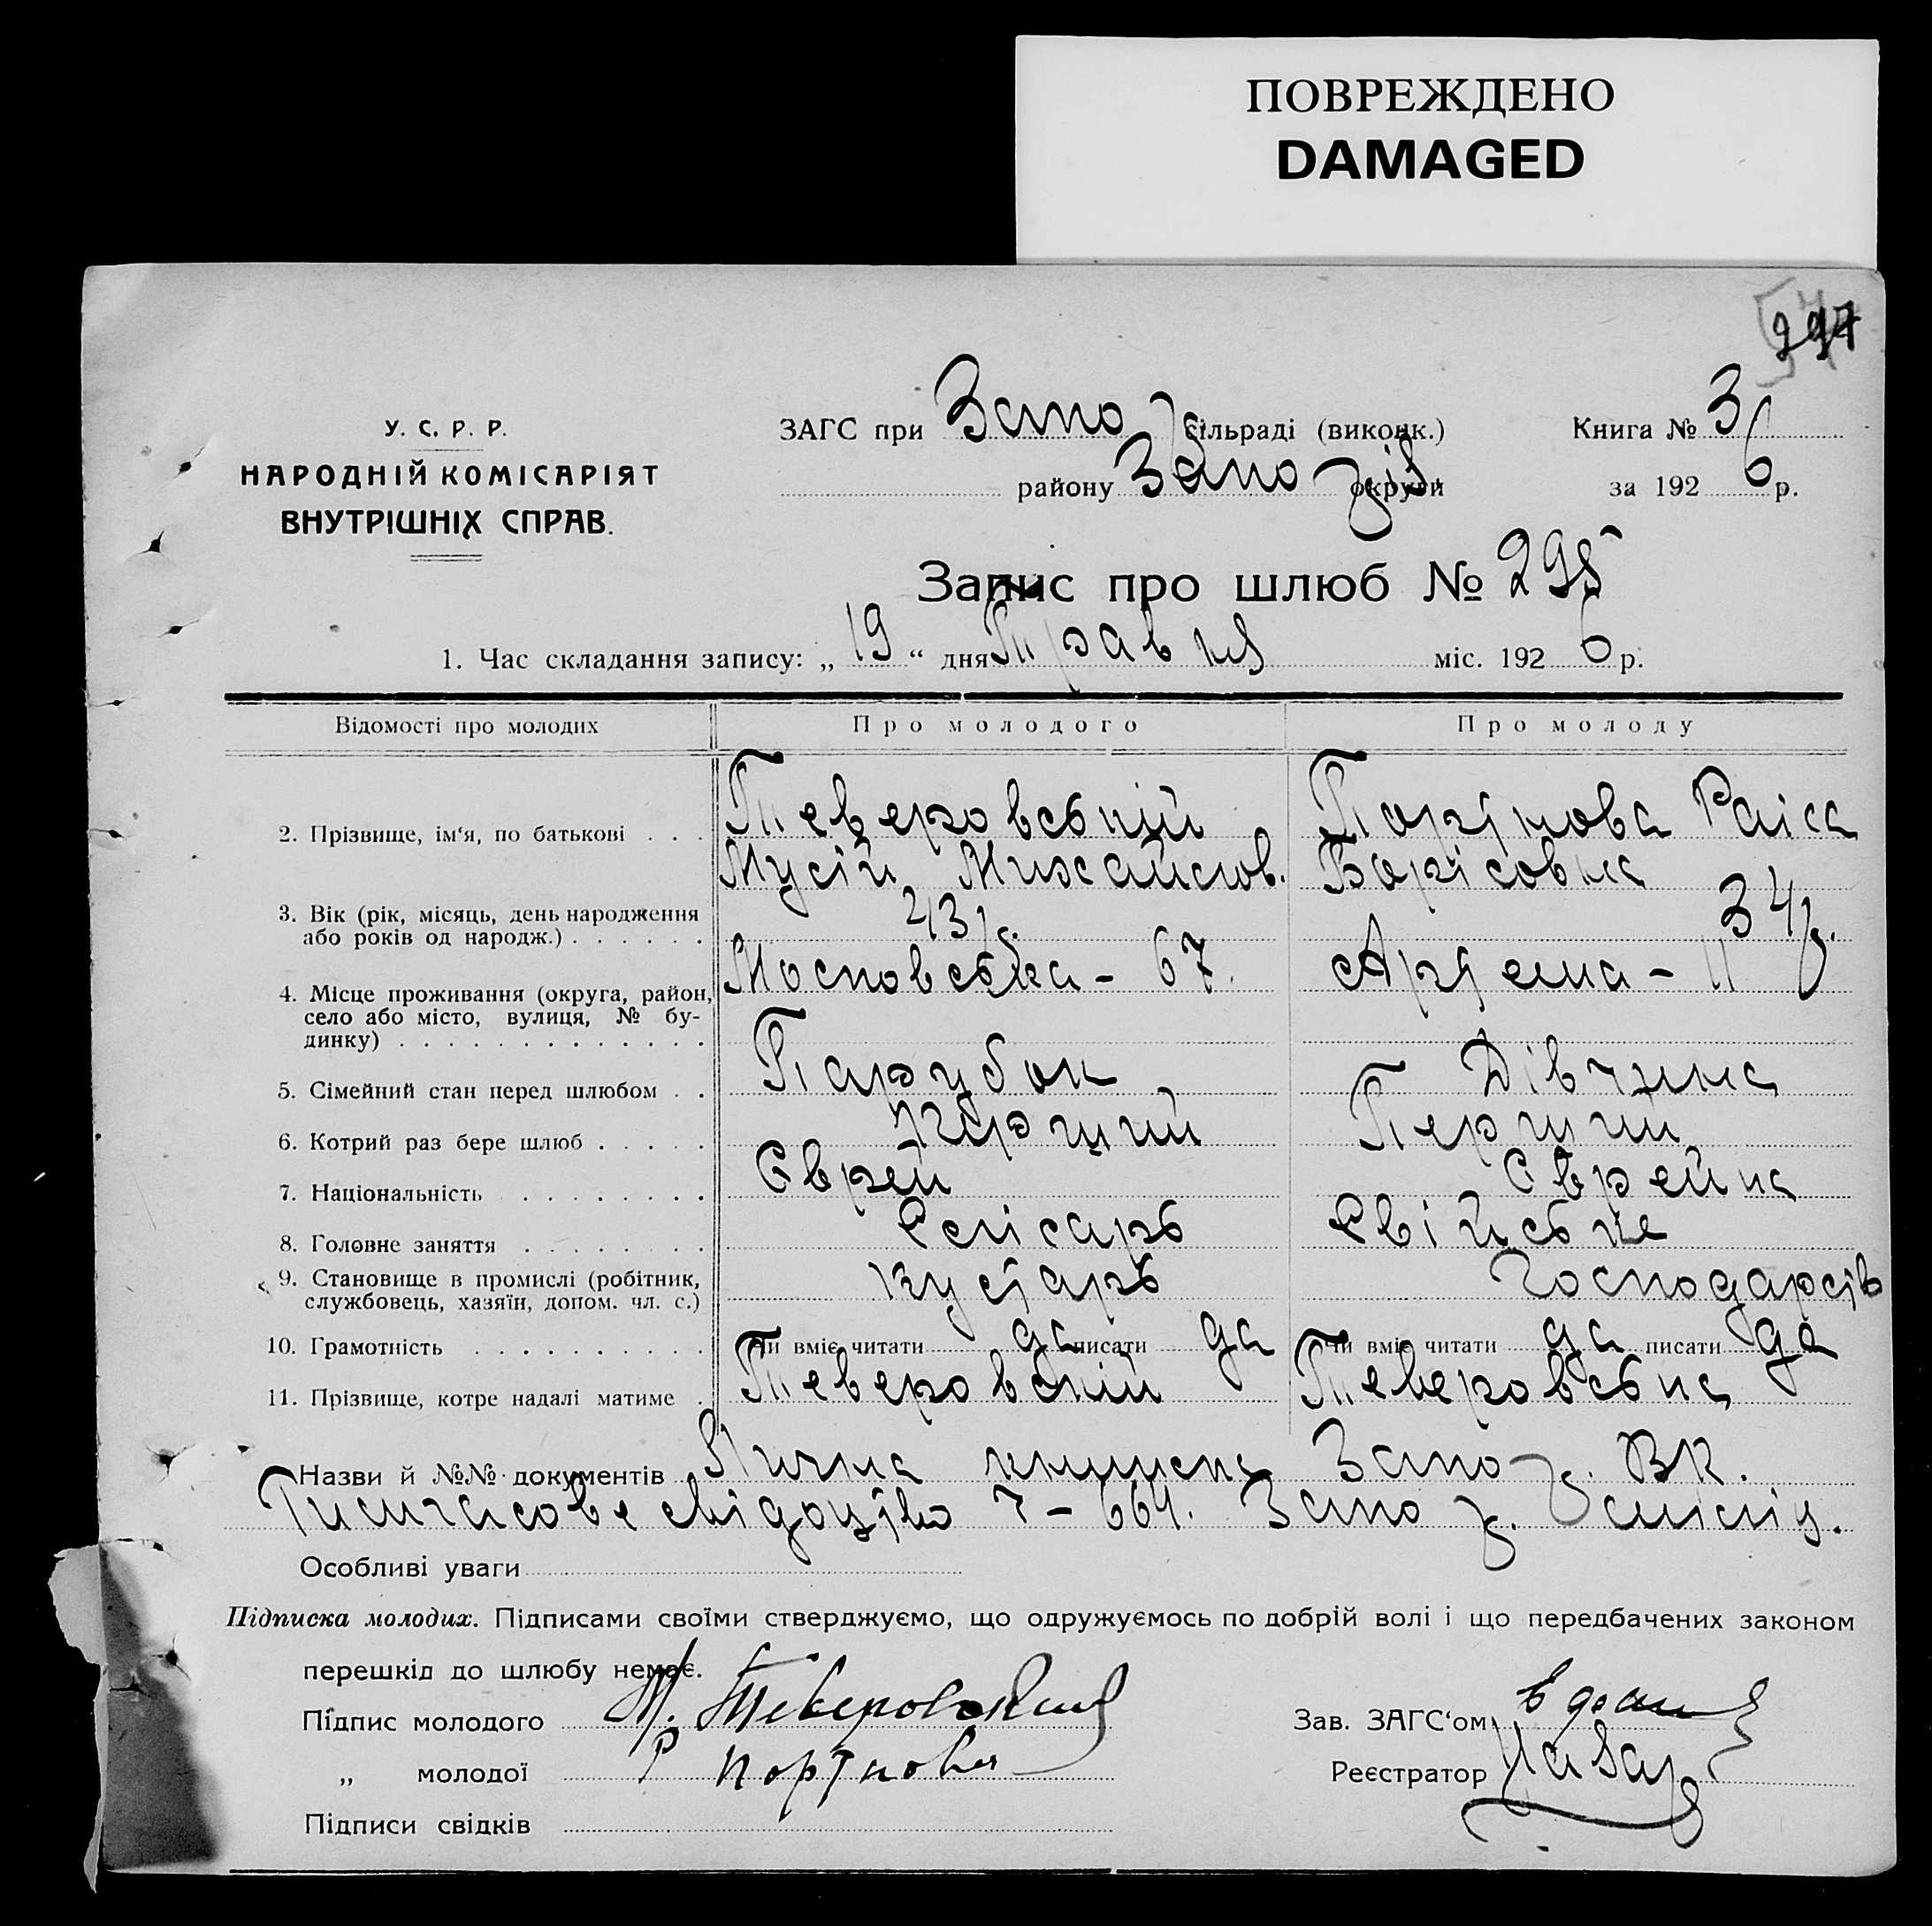 ПОВРЕЖДЕНО
DAMAGED
У. С. Р. Р.
НАРОДНІЙ КОМІСАРІЯТ
ВНУТРІШНІХ СПРАВ.
ЗАГС при Запо сільраді (виконк.)
району Запо округи
Книга № 3
за 1926 р.
Запис про шлюб № 295
1. Час складання запису: „19“ дня Травня міс. 1926 р.
Відомості про молодих Про молодого Про молоду
2. Прізвище, ім‘я, по батькові . . . Теверовський Портнова Раіса
Мусій Михайлов. Борісовна
3. Вік (рік, місяць, день народження
або років од народж.) . . . . . . 34р.
Московська - 67. Артема - 11
4. Місце проживання (округа, район,
село або місто, вулиця, № бу-
динку) . . . . . . . . . . . . . .
5. Сімейний стан перед шлюбом . . Парубок Дівчина
6. Котрий раз бере шлюб . . . . . Перший Перший
7. Національність . . . . . . . . . Єврей Єврейка
8. Головне заняття . . . . . . . . Слісарь Свійське
9. Становище в промислі (робітник,
службовець, хазяїн, допом. чл. с.) кустарь Господарств
10. Грамотність . . . . . . . . . . Чи вміє читати да писати да Чи вміє читати да писати да
11. Прізвище, котре надалі матиме . Теверовский Теверовська
Назви й №№ документів Лична книжка Запо ВК.
Тимчасове свідоцтво 7-664. Запо
Особливі уваги
Підписка молодих. Підписами своїми стверджуємо, що одружуємось по добрій волі і що передбачених законом
перешкід до шлюбу немає.
Підпис молодого М. Теверовский
Зав. ЗАГС‘ом
„ молодої Р Портнова
Реєстратор
Підписи свідків